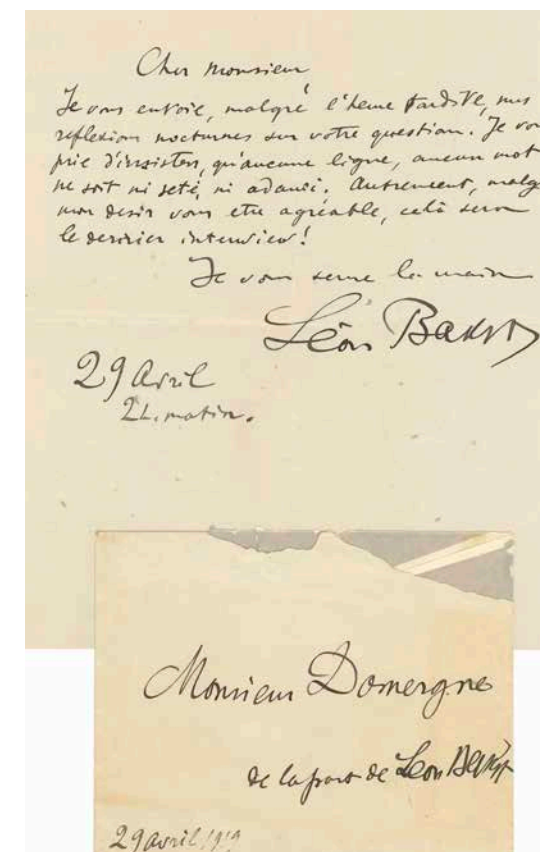 Cher Monsieur
Je vous envoie, malgré l'heure tardive, mes
reflexions nocturnes sur votre question. Je vou
prie d'insister, qu'aucune ligne, aucun mot
ne soit ni jeté, ni adouci. Autrement, malg
mon desir vous etre agréable, cela sera
le dernier interview!
Je vous serre la main
Léon Bakst
29 Avril
2 h. matin.
Monsieur Domergue
de la part de Léon Bakst
29 avril 1919